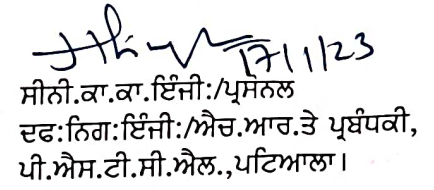 17/1/23
ਸੀਨੀ.ਕਾ.ਕਾ.ਇੰਜੀ:/ਪ੍ਰਸੋਨਲ
ਦਫ:ਨਿਗ:ਇੰਜੀ:/ਐਚ.ਆਰ.ਤੇ ਪ੍ਰਬੰਧਕੀ,
ਪੀ.ਐਸ.ਟੀ.ਸੀ.ਐਲ.,ਪਟਿਆਲਾ।